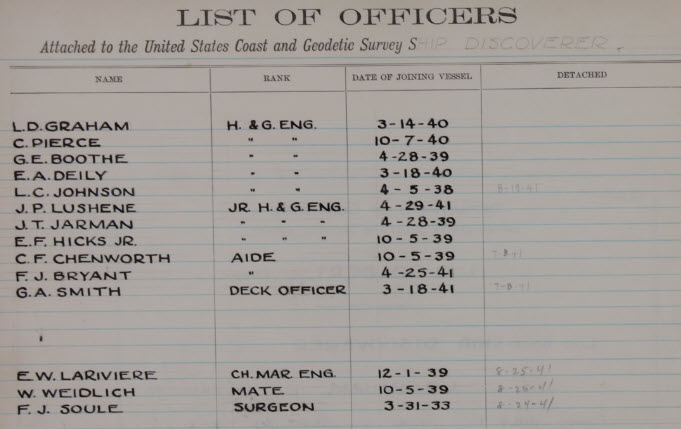 LIST OF OFFICERS
Attached to the United States Coast and Geodetic Survey SHIP DISCOVERER.
NAME RANK DATE OF JOINING VESSEL DETACHED
L.D. GRAHAM H. & G. ENG. 3-14-40
C. PIERCE " " 10-7-40
G.E. BOOTHE " " 4-28-39
E.A. DEILY " " 3-18-40
L.C. JOHNSON " " 4-5-38
J.P. LUSHENE JR. H. & G. ENG. 4-29-41
J.T. JARMAN " " " 4-28-39
E.F. HICKS JR. " " " 10-5-39
C.F. CHENWORTH AIDE 10-5-39 7-8-41
F.J. BRYANT " 4-25-41
G.A. SMITH DECK OFFICER 3-18-41 7-8-41
E.W. LARIVIERE CH. MAR. ENG. 12-1-39 8-25-41
W. WEIDLICH MATE 10-5-39
F.J. SOULE SURGEON 3-31-33 8-24-41